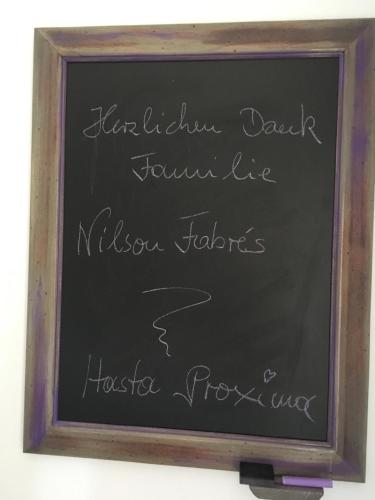 Herzlichen Dank
Familie
Nilson Fabrés
Hasta Proxima